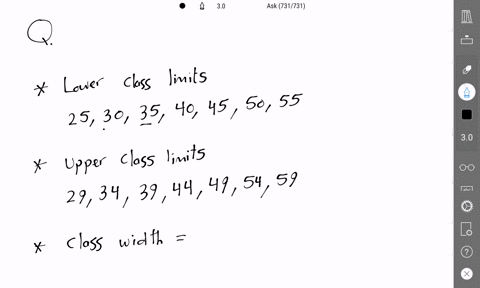 3.0 Ask (731/731)
Q.
* Lower class limits
25, 30, 35, 40, 45, 50, 55
* Upper class limits
29, 34, 39, 44, 49, 54, 59
* Class width =
3.0